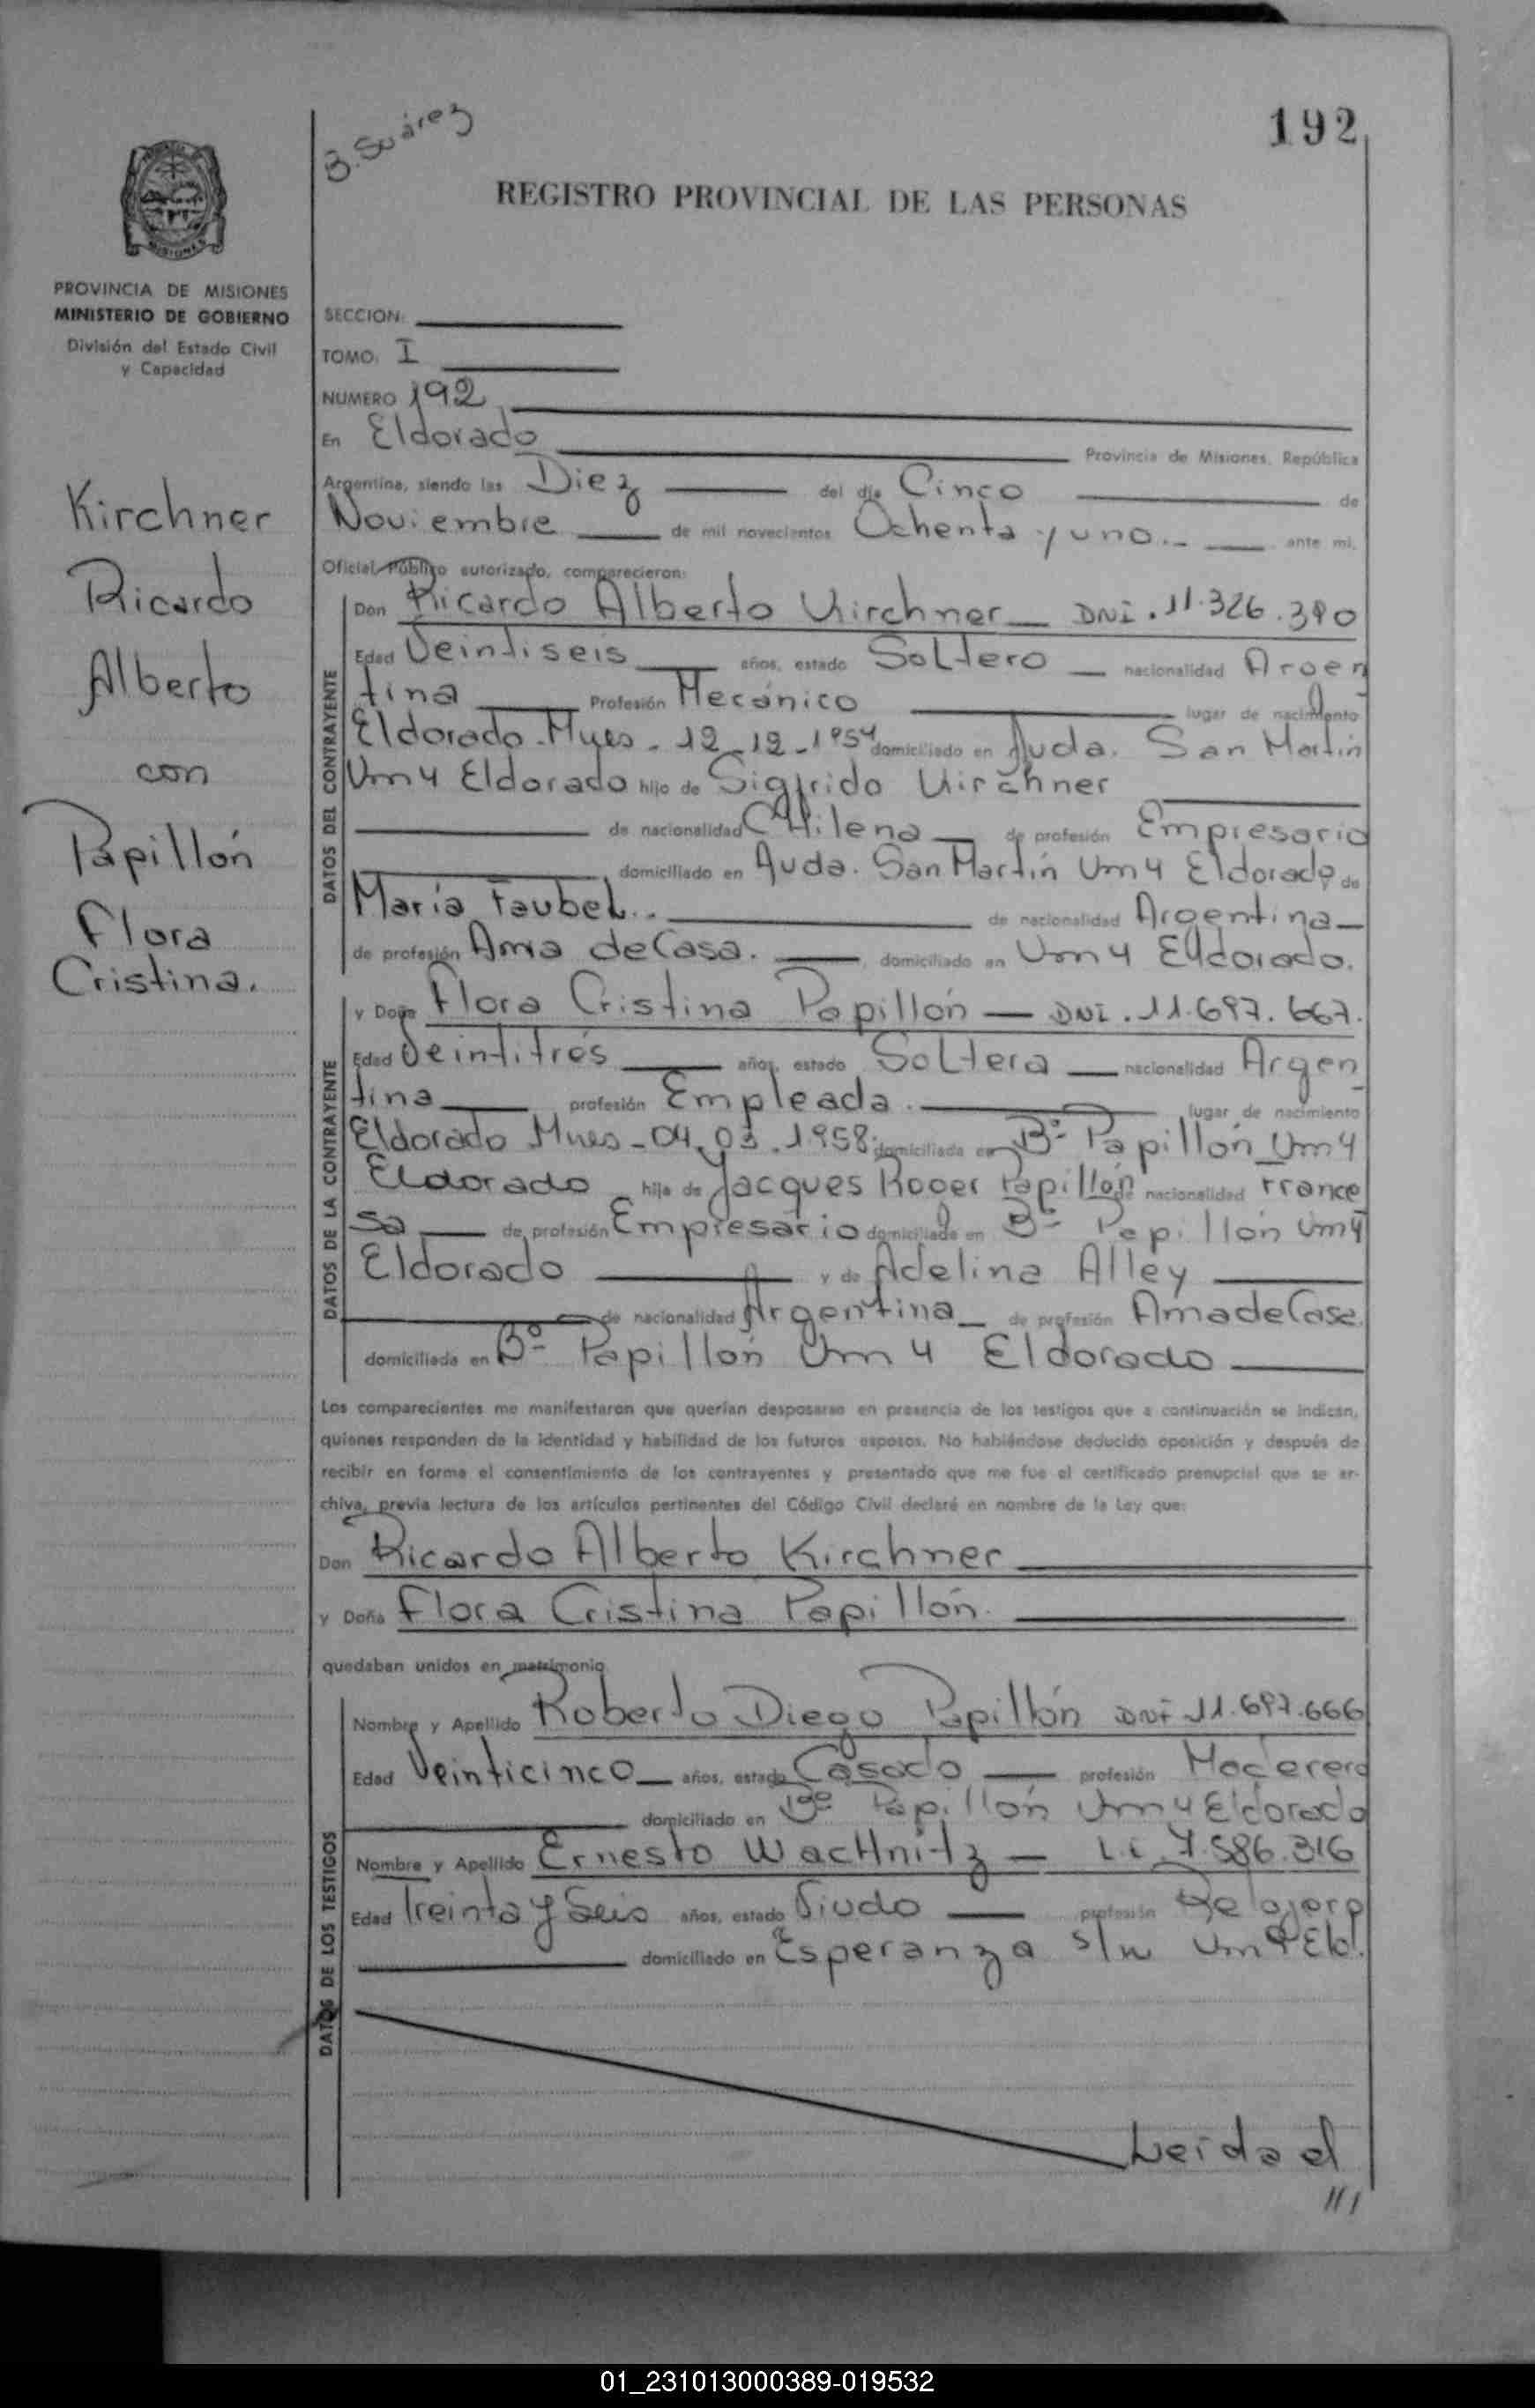 B. Suárez
192
REGISTRO PROVINCIAL DE LAS PERSONAS
MISIONES
PROVINCIA DE MISIONES
MINISTERIO DE GOBIERNO
División del Estado Civil
y Capacidad
Kirchner
Ricardo
Alberto
con
Papillón
Flora
Cristina.
SECCION:
TOMO: I
NUMERO 192
En Eldorado Provincia de Misiones, República
Argentina, siendo las Diez del día Cinco de
Noviembre de mil novecientos Ochenta y uno.- ante mi,
Oficial Público autorizado, comparecieron:
DATOS DEL CONTRAYENTE
Don Ricardo Alberto Kirchner DNI. 11.326.390
Edad Veintiseis años, estado Soltero nacionalidad Argen
tina Profesión Mecánico lugar de nacimiento
Eldorado-Mnes- 12-12-1954 domiciliado en Avda. San Martin
Km 4 Eldorado hijo de Sigfrido Kirchner
de nacionalidad CHilena de profesión Empresario
domiciliado en Avda. San Martín Km 4 Eldorado y de
María Faubel.. de nacionalidad Argentina
de profesión Ama de Casa. domiciliado en Km 4 Eldorado.
DATOS DE LA CONTRAYENTE
y Doña Flora Cristina Papillón DNI. 11.697.667.
Edad Veintitrés años, estado Soltera nacionalidad Argen
tina profesión Empleada. lugar de nacimiento
Eldorado Mnes-04.03.1958 domiciliada en Bº Papillón Km 4
Eldorado hija de Jacques Roger Papillón de nacionalidad France
sa de profesión Empresario domiciliado en Bº Papillón Km 4
Eldorado y de Adelina Alley
de nacionalidad Argentina de profesión Ama de Casa.
domiciliada en Bº Papillón Km 4 Eldorado
Los comparecientes me manifestaron que querían desposarse en presencia de los testigos que a continuación se indican,
quienes responden de la identidad y habilidad de los futuros esposos. No habiéndose deducido oposición y después de
recibir en forma el consentimiento de los contrayentes y presentado que me fue el certificado prenupcial que se ar-
chiva, previa lectura de los artículos pertinentes del Código Civil declaré en nombre de la Ley que:
Don Ricardo Alberto Kirchner
y Doña Flora Cristina Papillón
quedaban unidos en matrimonio
DATOS DE LOS TESTIGOS
Nombre y Apellido Roberto Diego Papillón DNI 11.697.666
Edad Veinticinco años, estado Casado profesión Maderero
domiciliado en Bº Papillón Km 4 Eldorado
Nombre y Apellido Ernesto WacHnitz L.E. 7.586.316
Edad Treinta y Seis años, estado Viudo profesión Relojero
domiciliado en Esperanza s/n Km 9 Eld.
Leída el
///
01_231013000389-019532